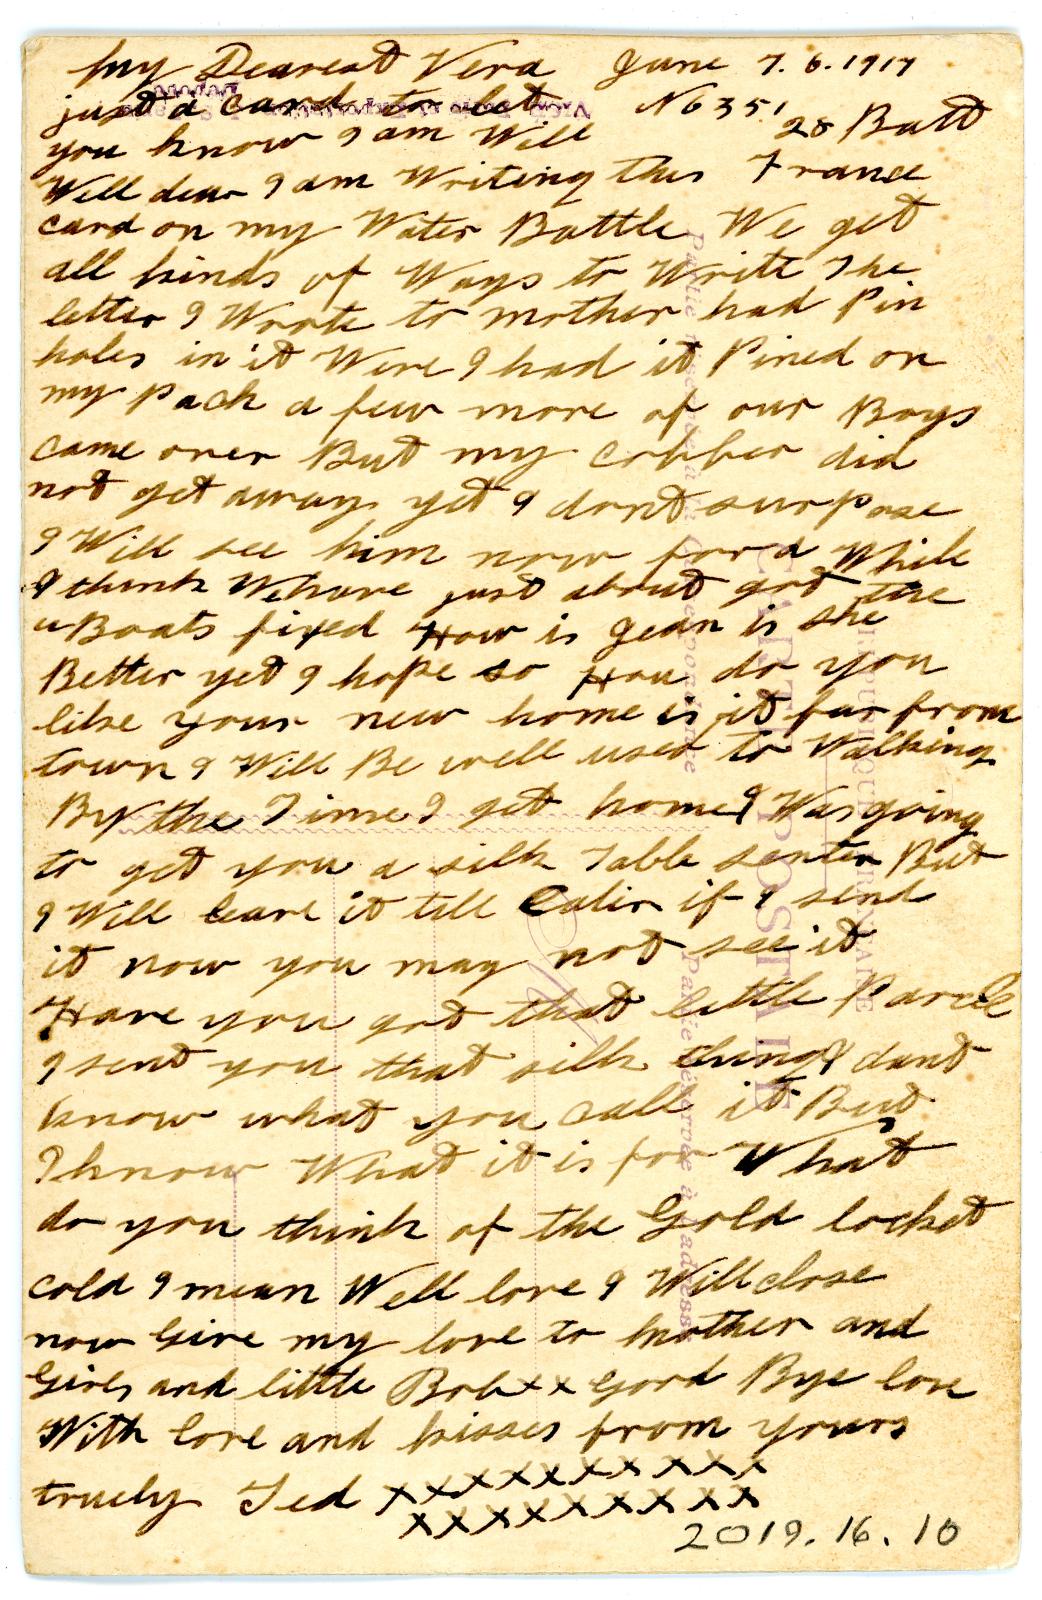 My Dearest Vera June 7.6.1917
just a card to let No 351
you know I am Well 28 Batt
Well dear I am Writing this France
card on my Water Bottle We get
all kinds of Ways to Write The
letter I Wrote to mother had Pin
holes in it Were I had it Pined on
my Pack a few more of our Boys
came over But my cobber did
not get away yet I dont surpose
I Will see him now for a While
I think We have just about got the
u Boats fixed How is Jean is she
Better yet I hope so How do you
like your new home is it far from
town I Will Be well used to Walking
By the Time I get home I Was going
to get you a silk Table senter But
I Will leave it till Later if I send
it now you may not see it
Have you got that little Parcel
I sent you that silk thing I dont
know what you call it But
I know What it is for What
do you think of the Gold locket
cold I mean Well love I Will close
now Give my love to Mother and
Girls and little Bob x x Good Bye love
With love and kisses from yours
truely Ted xxxxxxxxxxx
xxxxxxxxxx
2019.16.10
CARTE POSTALE
Partie réservée à la Correspondance
Partie réservée à l'adresse